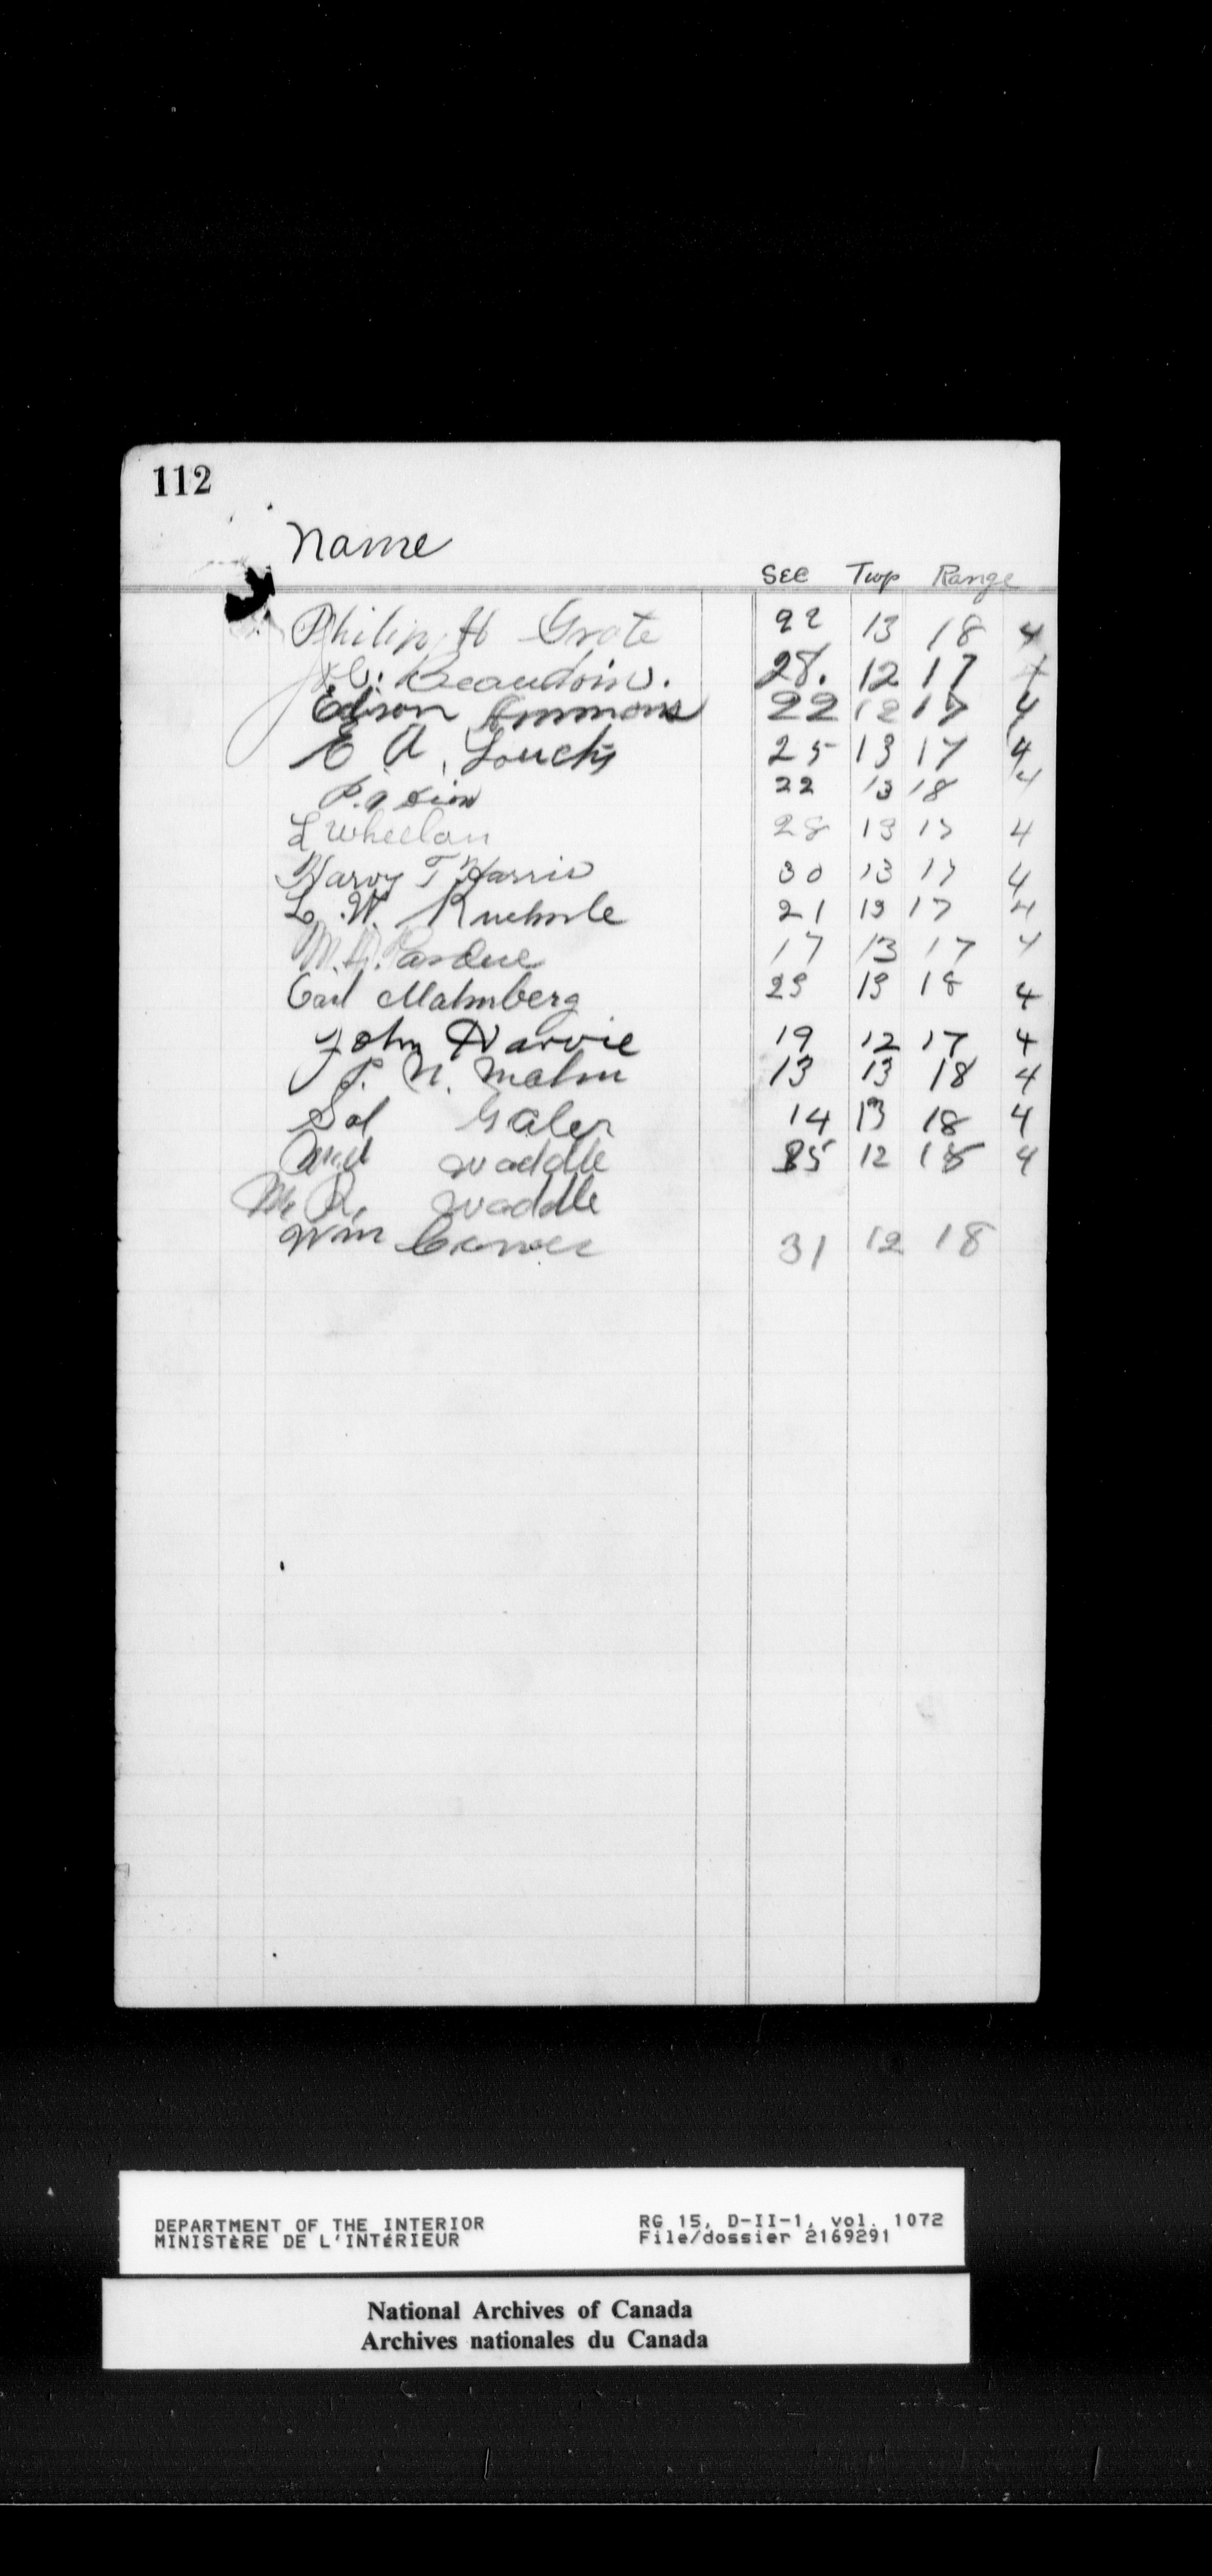 112
Name
Sec Twp Range
Philip H Grote 22 13 18 4
Beaudoin. 28. 12 17 4
Edison Ammons 22 12 17 4
E A. Loucks 25 13 17 4
22 13 18 4
L Whelan 28 13 17 4
Harvy T Harris 30 13 17 4
L. W. Kuehnle 21 13 17 4
M. A. Pardue 17 13 17 4
Carl Malmberg 23 13 18 4
John Harvie 19 12 17 4
P. N. Malm 13 13 18 4
Sol Galer 14 13 18 4
waddle 35 12 18 4
waddle
Wm 31 12 18
DEPARTMENT OF THE INTERIOR RG 15, D-II-1, vol. 1072
MINISTÈRE DE L'INTÉRIEUR File/dossier 2169291
National Archives of Canada
Archives nationales du Canada